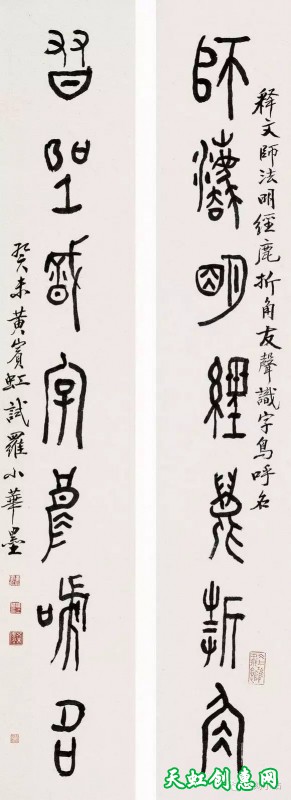 释文師法明經鹿折角友聲識字鳥呼名
師灋明經鹿折角
友聲識字鳥呼名
癸未黃賓虹試羅小華墨
天虹创惠网